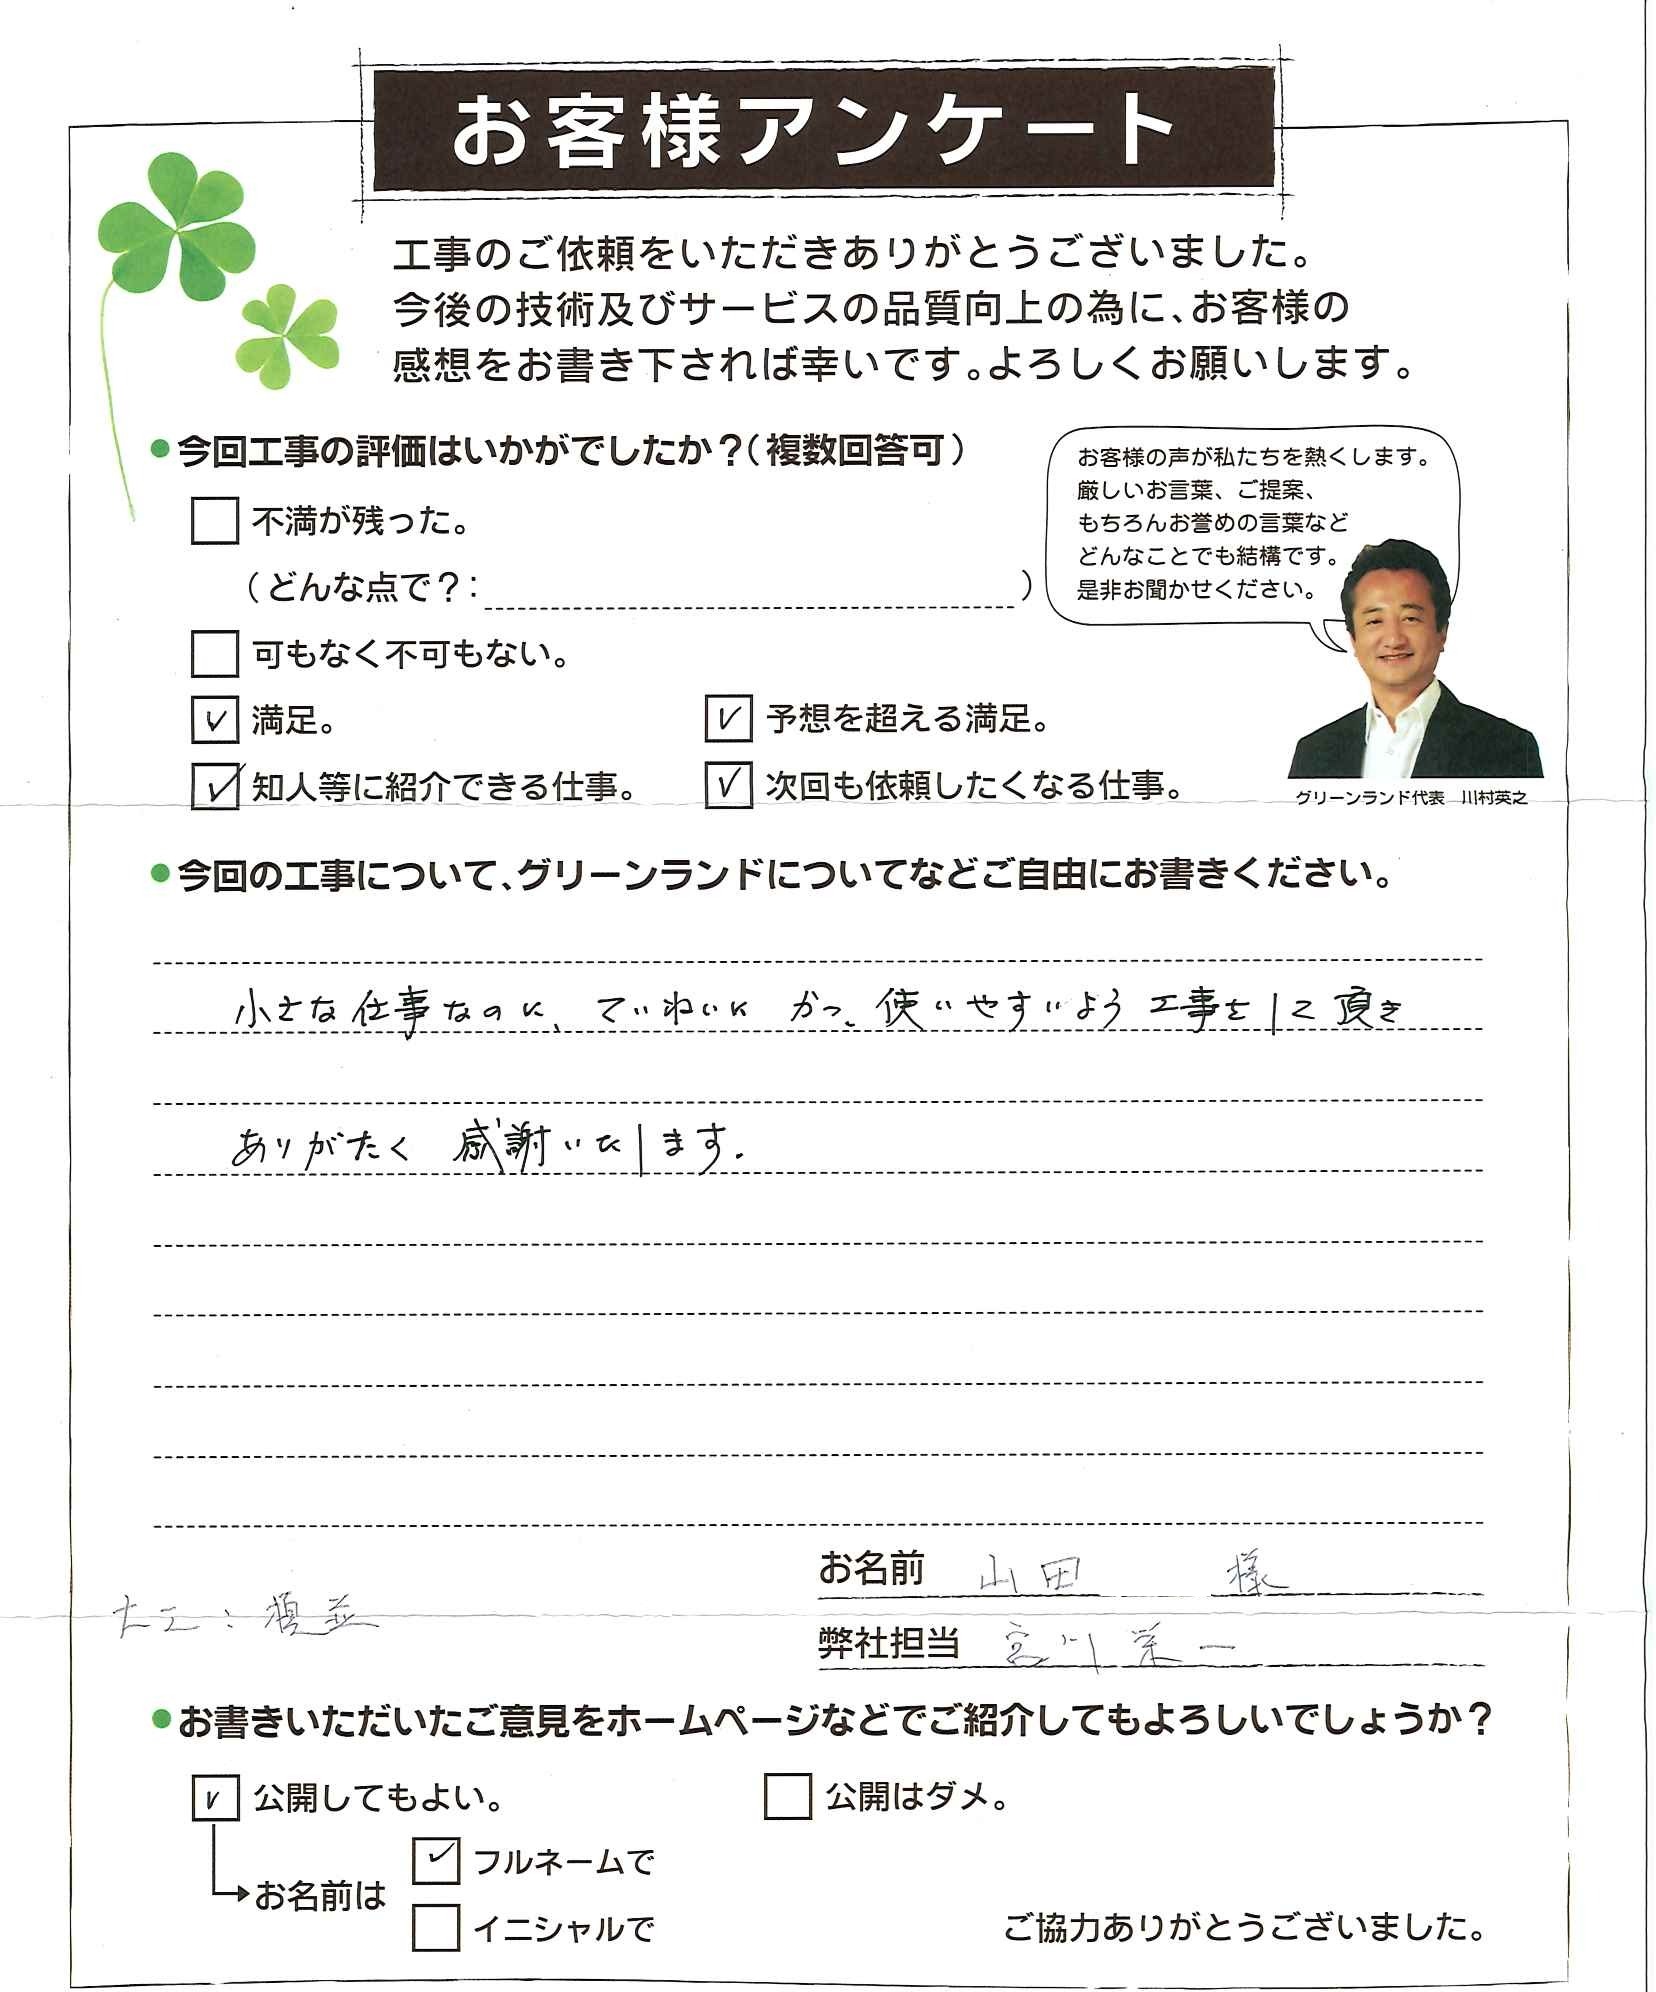 お客様アンケート
工事のご依頼をいただきありがとうございました。
今後の技術及びサービスの品質向上の為に、お客様の
感想をお書き下されば幸いです。よろしくお願いします。
●今回工事の評価はいかがでしたか？（複数回答可）
お客様の声が私たちを熱くします。
厳しいお言葉、ご提案、
もちろんお誉めの言葉など
どんなことでも結構です。
是非お聞かせください。
不満が残った。
（どんな点で？： ）
可もなく不可もない。
満足。
予想を超える満足。
知人等に紹介できる仕事。
次回も依頼したくなる仕事。
グリーンランド代表 川村英之
●今回の工事について、グリーンランドについてなどご自由にお書きください。
小さな仕事なのに、ていねいに かつ、使いやすいよう 工事をして頂き
ありがたく 感謝いたします.
お名前 山田 様
大工：
弊社担当 宮川 栄一
●お書きいただいたご意見をホームページなどでご紹介してもよろしいでしょうか？
公開してもよい。
公開はダメ。
お名前は
フルネームで
イニシャルで
ご協力ありがとうございました。